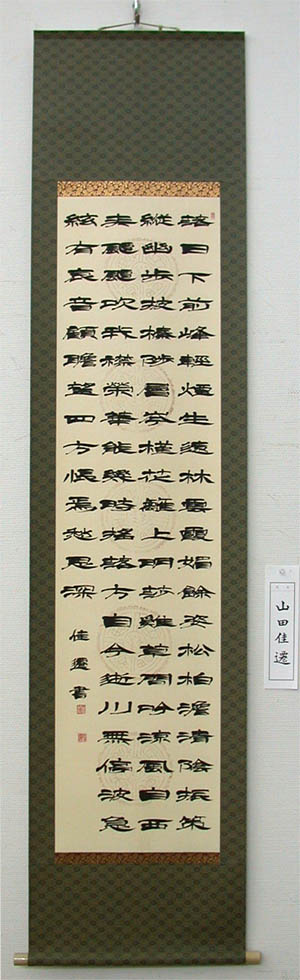 落日下前峰輕煙生遠林雲霞媚餘姿松柏澹清陰振策
縱幽步披榛陟層岑槿花籬上明莎雞草間吟涼風自西
来颼颼吹我襟榮華能幾時搖落方自今逝川無停波急
絃有哀音顧瞻望四方悵焉愁思深
佳遷書
山田佳遷